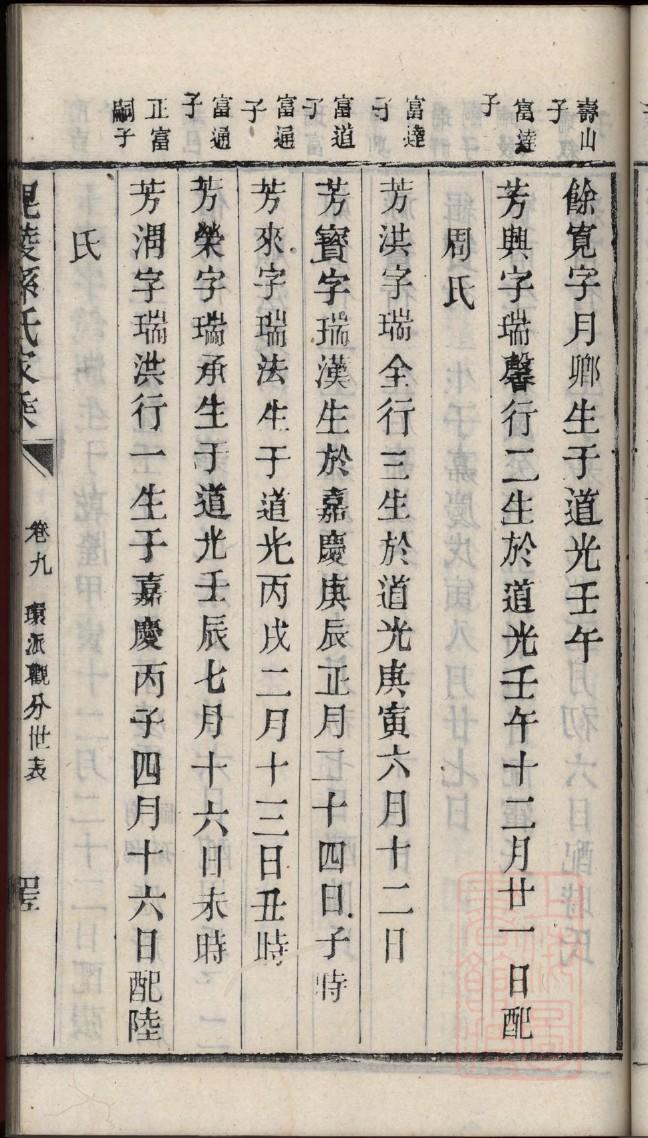 壽山子
餘寬字月鄉生于道光壬午
富達子
芳興字瑞馨行二生於道光壬午十二月廿一日配
周氏
富達子
芳洪字瑞全行三生於道光庚寅六月十二日
富道子
芳寳字瑞漢生於嘉慶庚辰正月二十四日子時
富通子
芳來字瑞法生于道光丙戌二月十三日丑時
富通子
芳榮字瑞承生于道光壬辰七月十六日未時
正富嗣子
芳潤字瑞洪行一生于嘉慶丙子四月十六日配陸
氏
毘陵孫氏家乘
卷九 環派觀分世表